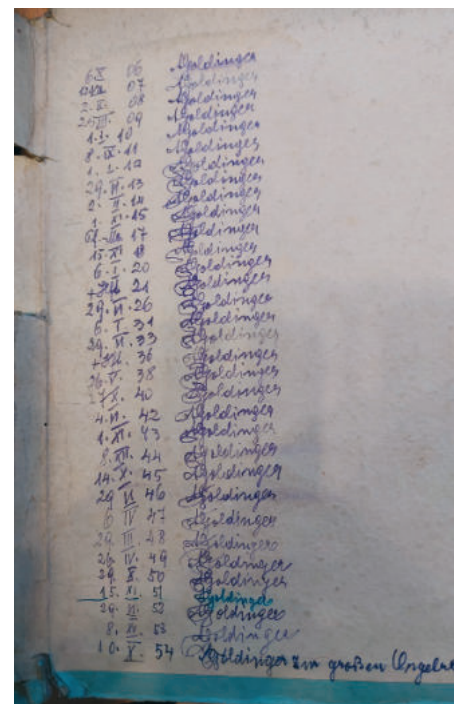 6.X 06 AGoldinger
07 AGoldinger
2. XI. 08 AGoldinger
09 AGoldinger
1. I. 10 AGoldinger
8. IX. 11 AGoldinger
1. I. 12 AGoldinger
29. VI. 13 AGoldinger
2. II. 14 AGoldinger
1. XI. 15 AGoldinger
17 AGoldinger
15. XI 18 AGoldinger
6. I. 20 AGoldinger
21 AGoldinger
29. VI. 26 AGoldinger
6. I 31 AGoldinger
29. VI. 33 AGoldinger
36 AGoldinger
26. V. 38 AGoldinger
X. 40 AGoldinger
4. VI. 42 AGoldinger
1. XI. 43 AGoldinger
8. XII. 44 AGoldinger
14. X. 45 AGoldinger
29 VI 46 AGoldinger
6 IV 47 AGoldinger
29. III. 48 AGoldinger
26. IV. 49 AGoldinger
29. X. 50 AGoldinger
15. XI. 51 AGoldinger
29. VI. 52 AGoldinger
8. XI. 53 AGoldinger
10. X. 54 AGoldinger zur großen Orgel